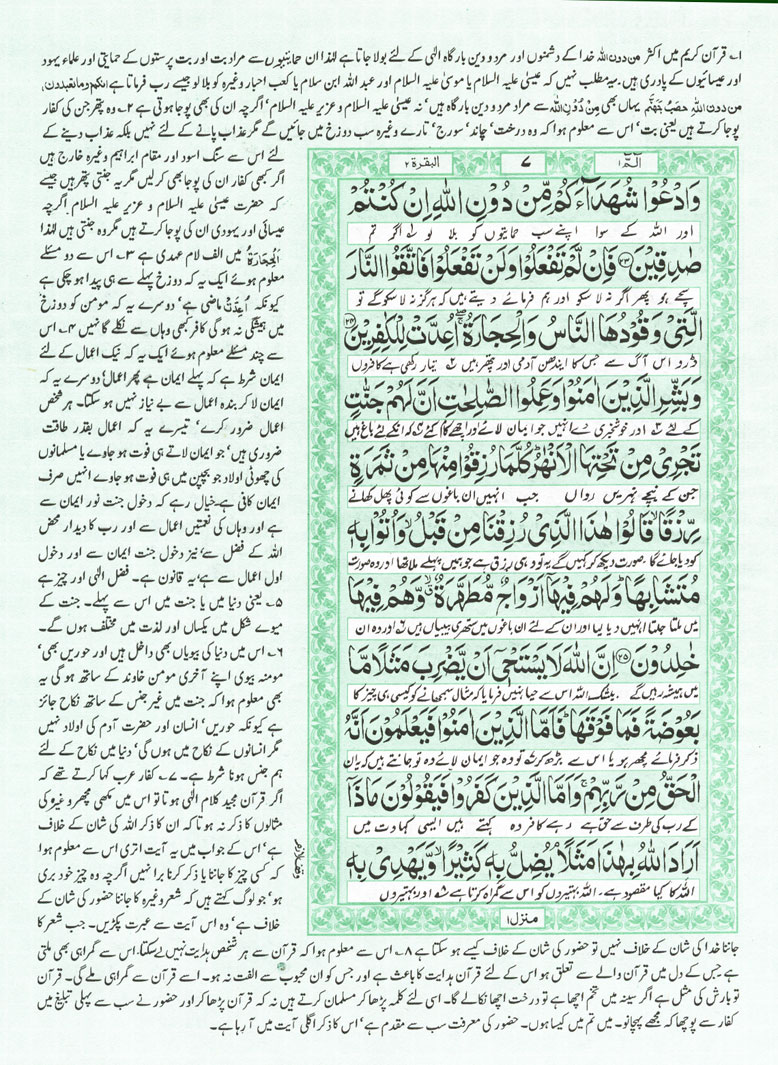 ۱؎ قرآن کریم میں اکثر من دون اللہ خدا کے دشمنوں اور مردودین بارگاہ الٰہی کے لئے بولا جاتا ہے لہٰذا ان حمایتیوں سے مراد بت اور بت پرستوں کے حمایتی اور علماء یہود
اور عیسائیوں کے پادری ہیں۔ یہ مطلب نہیں کہ عیسیٰ علیہ السلام یا موسیٰ علیہ السلام اور عبد اللہ ابن سلام یا کعب احبار وغیرہ کو بلا لو جیسے رب فرماتا ہے انکم وما تعبدون
من دون اللہ حصب جہنم یہاں بھی من دون اللہ سے مراد مردودین بارگاہ ہیں' نہ عیسیٰ علیہ السلام و عزیر علیہ السلام' اگرچہ ان کی بھی پوجا ہوتی ہے ۲؎ وہ پتھر جن کی کفار
پوجا کرتے ہیں یعنی بت' اس سے معلوم ہوا کہ وہ درخت' چاند' سورج' تارے وغیرہ سب دوزخ میں جائیں گے مگر عذاب پانے کے لئے نہیں بلکہ عذاب دینے کے
لئے اس سے سنگ اسود اور مقام ابراہیم وغیرہ خارج ہیں
اگر کبھی کفار ان کی پوجا بھی کرلیں مگر یہ جنتی پتھر ہیں جیسے
کہ حضرت عیسیٰ علیہ السلام و عزیر علیہ السلام اگرچہ
عیسائی اور یہودی ان کی پوجا کرتے ہیں مگر وہ جنتی ہیں لہٰذا
الحجارۃ میں الف لام عہدی ہے ۳؎ اس سے دو مسئلے
معلوم ہوئے ایک یہ کہ دوزخ پہلے سے ہی پیدا ہو چکی ہے
کیونکہ اعدت ماضی ہے' دوسرے یہ کہ مومن کو دوزخ
میں ہمیشگی نہ ہوگی کافر کبھی وہاں سے نکلے گا نہیں ۴؎ اس
سے چند مسئلے معلوم ہوئے ایک یہ کہ نیک اعمال کے لئے
ایمان شرط ہے کہ پہلے ایمان ہے پھر اعمال' دوسرے یہ کہ
ایمان لا کر بندہ اعمال سے بے نیاز نہیں ہو سکتا۔ ہر شخص
اعمال ضرور کرے' تیسرے یہ کہ اعمال بقدر طاقت
ضروری ہیں' جو ایمان لاتے ہی فوت ہو جاوے یا مسلمانوں
کی چھوٹی اولاد جو بچپن میں ہی فوت ہو جاوے انہیں صرف
ایمان کافی ہے۔ خیال رہے کہ دخول جنت نور ایمان سے
ہے اور وہاں کی نعمتیں اعمال سے اور رب کا دیدار محض
اللہ کے فضل سے' نیز دخول جنت ایمان سے اور دخول
اول اعمال سے ہے' یہ قانون ہے۔ فضل الٰہی اور چیز ہے
۵؎ یعنی دنیا میں یا جنت میں اس سے پہلے۔ جنت کے
میوے شکل میں یکساں اور لذت میں مختلف ہوں گے۔
۶؎ اس میں دنیا کی بیویاں بھی داخل ہیں اور حوریں بھی'
مومنہ بیوی اپنے آخری مومن خاوند کے ساتھ ہوگی یہ
بھی معلوم ہوا کہ جنت میں غیر جنس کے ساتھ نکاح جائز
ہے کیونکہ حوریں' انسان اور حضرت آدم کی اولاد نہیں
مگر انسانوں کے نکاح میں ہوں گی' دنیا میں نکاح کے لئے
ہم جنس ہونا شرط ہے۔ ۷؎ کفار عرب کہا کرتے تھے کہ
اگر قرآن مجید کلام الٰہی ہوتا تو اس میں مکھی مچھر وغیرہ کی
مثالوں کا ذکر نہ ہوتا کہ ان کا ذکر اللہ کی شان کے خلاف
ہے' اس کے جواب میں یہ آیت اتری اس سے معلوم ہوا
کہ کسی چیز کا جاننا یا ذکر کرنا برا نہیں اگرچہ وہ چیز خود بری
ہو' جو لوگ کہتے ہیں کہ شعر وغیرہ کا جاننا حضور کی شان کے
خلاف ہے' وہ اس آیت سے عبرت پکڑیں۔ جب شعر کا
البقرۃ ۲
۷
الٓمّٓ ۱
وَادْعُوْا شُهَدَآءَكُمْ مِّنْ دُوْنِ اللّٰهِ اِنْ كُنْتُمْ
اور اللہ کے سوا اپنے سب حمایتیوں کو بلا لو ۱؎ اگر تم
صٰدِقِيْنَ ۲۳ فَاِنْ لَّمْ تَفْعَلُوْا وَلَنْ تَفْعَلُوْا فَاتَّقُوا النَّارَ
سچے ہو پھر اگر نہ لا سکو اور ہم فرمائے دیتے ہیں کہ ہرگز نہ لا سکو گے تو
الَّتِيْ وَقُوْدُهَا النَّاسُ وَالْحِجَارَةُ ۖ اُعِدَّتْ لِلْكٰفِرِيْنَ ۲۴
ڈرو اس آگ سے جس کا ایندھن آدمی اور پتھر ہیں ۲؎ تیار رکھی ہے کافروں
وَبَشِّرِ الَّذِيْنَ اٰمَنُوْا وَعَمِلُوا الصّٰلِحٰتِ اَنَّ لَهُمْ جَنّٰتٍ
کے لئے ۳؎ اور خوشخبری دے انہیں جو ایمان لائے اور اچھے کام کئے ۴؎ کہ ان کے لئے باغ ہیں
تَجْرِيْ مِنْ تَحْتِهَا الْاَنْهٰرُ ؕ كُلَّمَا رُزِقُوْا مِنْهَا مِنْ ثَمَرَةٍ
جن کے نیچے نہریں رواں جب انہیں ان باغوں سے کوئی پھل کھانے
رِّزْقًا ۙ قَالُوْا هٰذَا الَّذِيْ رُزِقْنَا مِنْ قَبْلُ ۙ وَاُتُوْا بِهٖ
کو دیا جائے گا ، صورت دیکھ کر کہیں گے یہ تو وہی رزق ہے جو ہمیں پہلے ملا تھا اور وہ صورت
مُتَشَابِهًا ؕ وَلَهُمْ فِيْهَآ اَزْوَاجٌ مُّطَهَّرَةٌ ۙ وَّهُمْ فِيْهَا
میں ملتا جلتا انہیں دیا گیا اور ان کے لئے ان باغوں میں ستھری بیبیاں ہیں ۶؎ اور وہ ان
خٰلِدُوْنَ ۲۵ اِنَّ اللّٰهَ لَا يَسْتَحْيٖٓ اَنْ يَّضْرِبَ مَثَلًا مَّا
میں ہمیشہ رہیں گے ۔ بیشک اللہ اس سے حیا نہیں فرماتا کہ مثال سمجھانے کو کیسی ہی چیز کا
بَعُوْضَةً فَمَا فَوْقَهَا ؕ فَاَمَّا الَّذِيْنَ اٰمَنُوْا فَيَعْلَمُوْنَ اَنَّهُ
ذکر فرمائے مچھر ہو یا اس سے بڑھ کر ۷؎ تو وہ جو ایمان لائے وہ تو جانتے ہیں کہ یہ ان
الْحَقُّ مِنْ رَّبِّهِمْ ۚ وَاَمَّا الَّذِيْنَ كَفَرُوْا فَيَقُوْلُوْنَ مَاذَآ
کے رب کی طرف سے حق ہے رہے کافر وہ کہتے ہیں ایسی کہاوت میں
اَرَادَ اللّٰهُ بِهٰذَا مَثَلًا ۘ يُضِلُّ بِهٖ كَثِيْرًا ۙ وَّيَهْدِيْ بِهٖ
اللہ کا کیا مقصود ہے ، اللہ بہتیروں کو اس سے گمراہ کرتا ہے ۸؎ اور بہتیروں
وقف لازم
منزل ۱
جاننا خدا کی شان کے خلاف نہیں تو حضور کی شان کے خلاف کیسے ہو سکتا ہے ۸؎ اس سے معلوم ہوا کہ قرآن سے ہر شخص ہدایت نہیں لے سکتا، اس سے گمراہی بھی ملتی
ہے جس کے دل میں قرآن والے سے تعلق ہو اس کے لئے قرآن ہدایت کا باعث ہے اور جس کو ان محبوب سے الفت نہ ہو۔ اسے قرآن سے گمراہی ملے گی۔ قرآن
تو بارش کی مثل ہے اگر سینہ میں تخم اچھا ہے تو درخت اچھا نکالے گا۔ اسی لئے کلمہ پڑھا کر مسلمان کرتے ہیں نہ کہ قرآن پڑھا کر اور حضور نے سب سے پہلی تبلیغ میں
کفار سے پوچھا کہ مجھے پہچانو۔ میں تم میں کیسا ہوں۔ حضور کی معرفت سب سے مقدم ہے' اس کا ذکر اگلی آیت میں آ رہا ہے۔